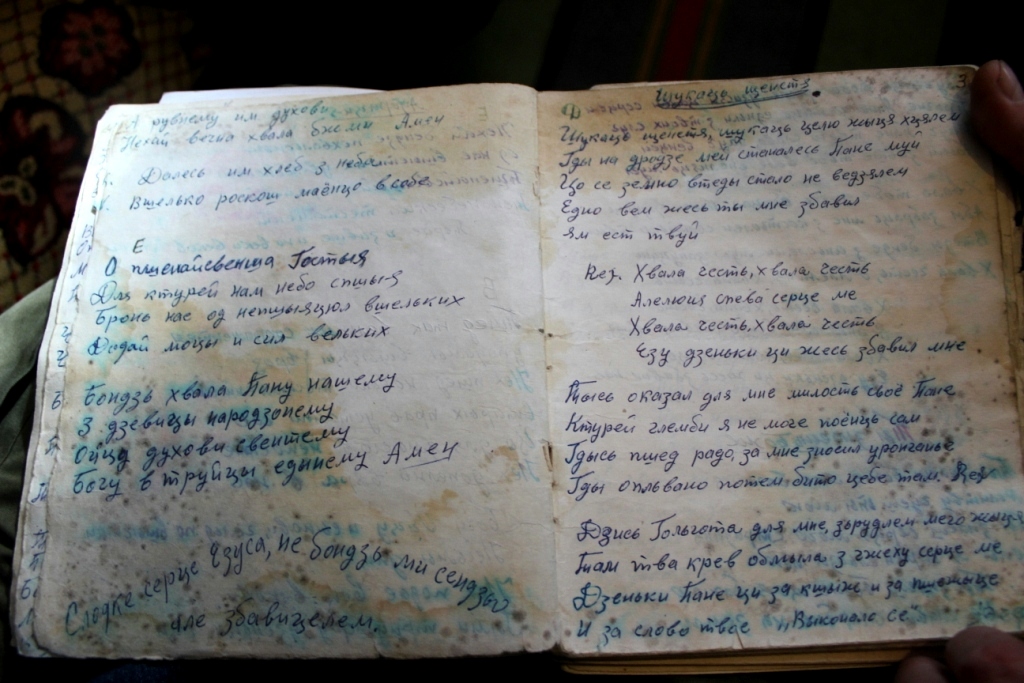 А рувнему им духови
Нехай вечна хвала бжми Амен
Далесь им хлеб з неба
Вшелько роскош маёнцо в собе
Е
О пшенайсвенша Гостыя
Для ктурей нам небо спшыя
Бронь нас од непшыяцюл вшельких
Додай моцы и сил вельких
Бондзь хвала Пану нашему
З дзевицы народзонему
Ойцу духови свентему
Богу в труйцы едынему Амен
Слодке серце Езуса, не бондзь ми сендзьо
але збавицелем.
3
Шукаць щенстя
Шукаць щенстя, шукаць целю жыця хцялем
Гды на дродзе мей станалесь Пане муй
Цо се земно втеды стало не ведзялем
Едно вем жесь ты мне збавил
ям ест твуй
Реф. Хвала честь, хвала честь
Алелюия спева серце ме
Хвала честь, хвала честь
Езу дзеньки ци жесь збавил мне
Тысь оказал для мне милость своё Пане
Ктурей глемби я не моге поёнць сам
Гдысь пшед радо, за мне зносил уронганье
Гды оплывано потем бито цебе там. Реф
Дзись Гольгота для мне, зьрудлем мего жыця
Там тва крев обмыла з гжеху серце ме
Дзеньки Пане ци за кшыже и за
И за слово твое „Выконало се"